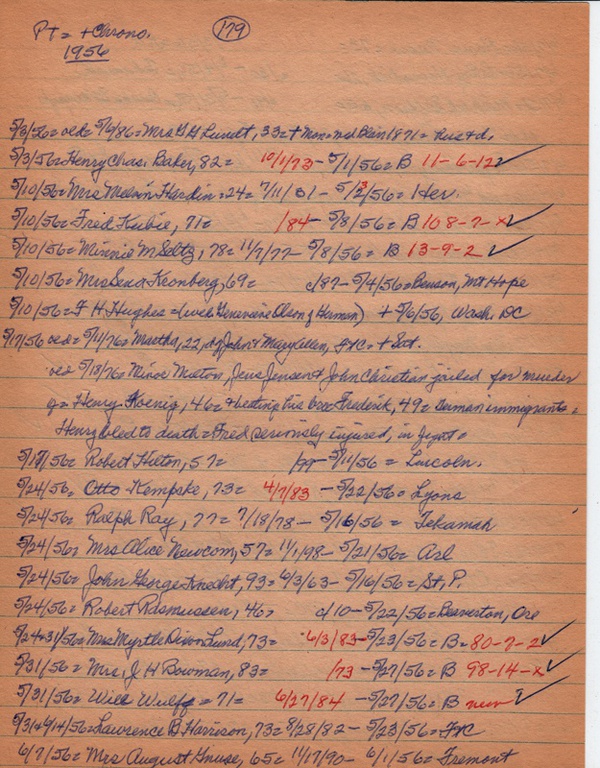 PT = + Chrono. 179
1956
5/3/56 = ved = 5/6/86 = Mrs G H Lundt, 33 = + Mon = wed Blair 1871 = hus & d.
5/3/56 = Henry Chas. Baker, 82 = 10/1/73 - 5/1/56 = B 11-6-12 ✓
5/10/56 = Mrs Melvin Hardin = 24 = 7/11/31 - 5/3/56 = Her.
5/10/56 = Fred Kubie, 71 = /84 - 5/8/56 = B 108-7-x ✓
5/10/56 = Minnie M Seltz, 78 = 11/7/77 - 5/8/56 = B 13-9-2 ✓
5/10/56 = Mrs Sena Kronberg, 69 = c/87 - 5/4/56 = Benson, Mt Hope
5/10/56 = F H Hughes = (wed Genevieve Olson of Herman) + 5/6/56, Wash. DC
5/17/56 ved = 5/11/76 = Martha, 22, d of John & Mary Allen, FtC = + Sat.
ved 5/18/76 = Minor Milton, Jens Jensen & John Christian jailed for murder
of = Henry Koenig, 46 = & beating his bro Frederick, 49 = German immigrants =
Henry bled to death = Fred seriously injured, in fight =
5/17/56 = Robert Hilton, 57 = /99 - 5/11/56 = Lincoln.
5/24/56 = Otto Kempske, 73 = 4/7/83 - 5/22/56 = Lyons
5/24/56 = Ralph Ray, 77 = 7/18/78 - 5/16/56 = Tekamah
5/24/56 = Mrs Alice Newcom, 57 = 11/1/98 - 5/21/56 = Arl
5/24/56 = John George Knecht, 93 = 6/3/63 - 5/16/56 = St. P.
5/24/56 = Robert Rasmussen, 46 = c/10 - 5/22/56 = Beaverton, Ore
5/24 & 31/56 = Mrs Myrtle Dixon Lund, 73 = 6/3/83 - 5/23/56 = B = 80-7-2 ✓
5/31/56 = Mrs. J H Bowman, 83 = /73 - 5/27/56 = B 98-14-x ✓
5/31/56 = Will Wulff = 71 = 6/27/84 - 5/27/56 = B new ✓
5/31 & 6/14/56 = Lawrence B Harrison, 73 = 8/28/82 - 5/23/56 = FtC
6/7/56 = Mrs August Gnuse, 65 = 11/17/90 - 6/1/56 = Fremont